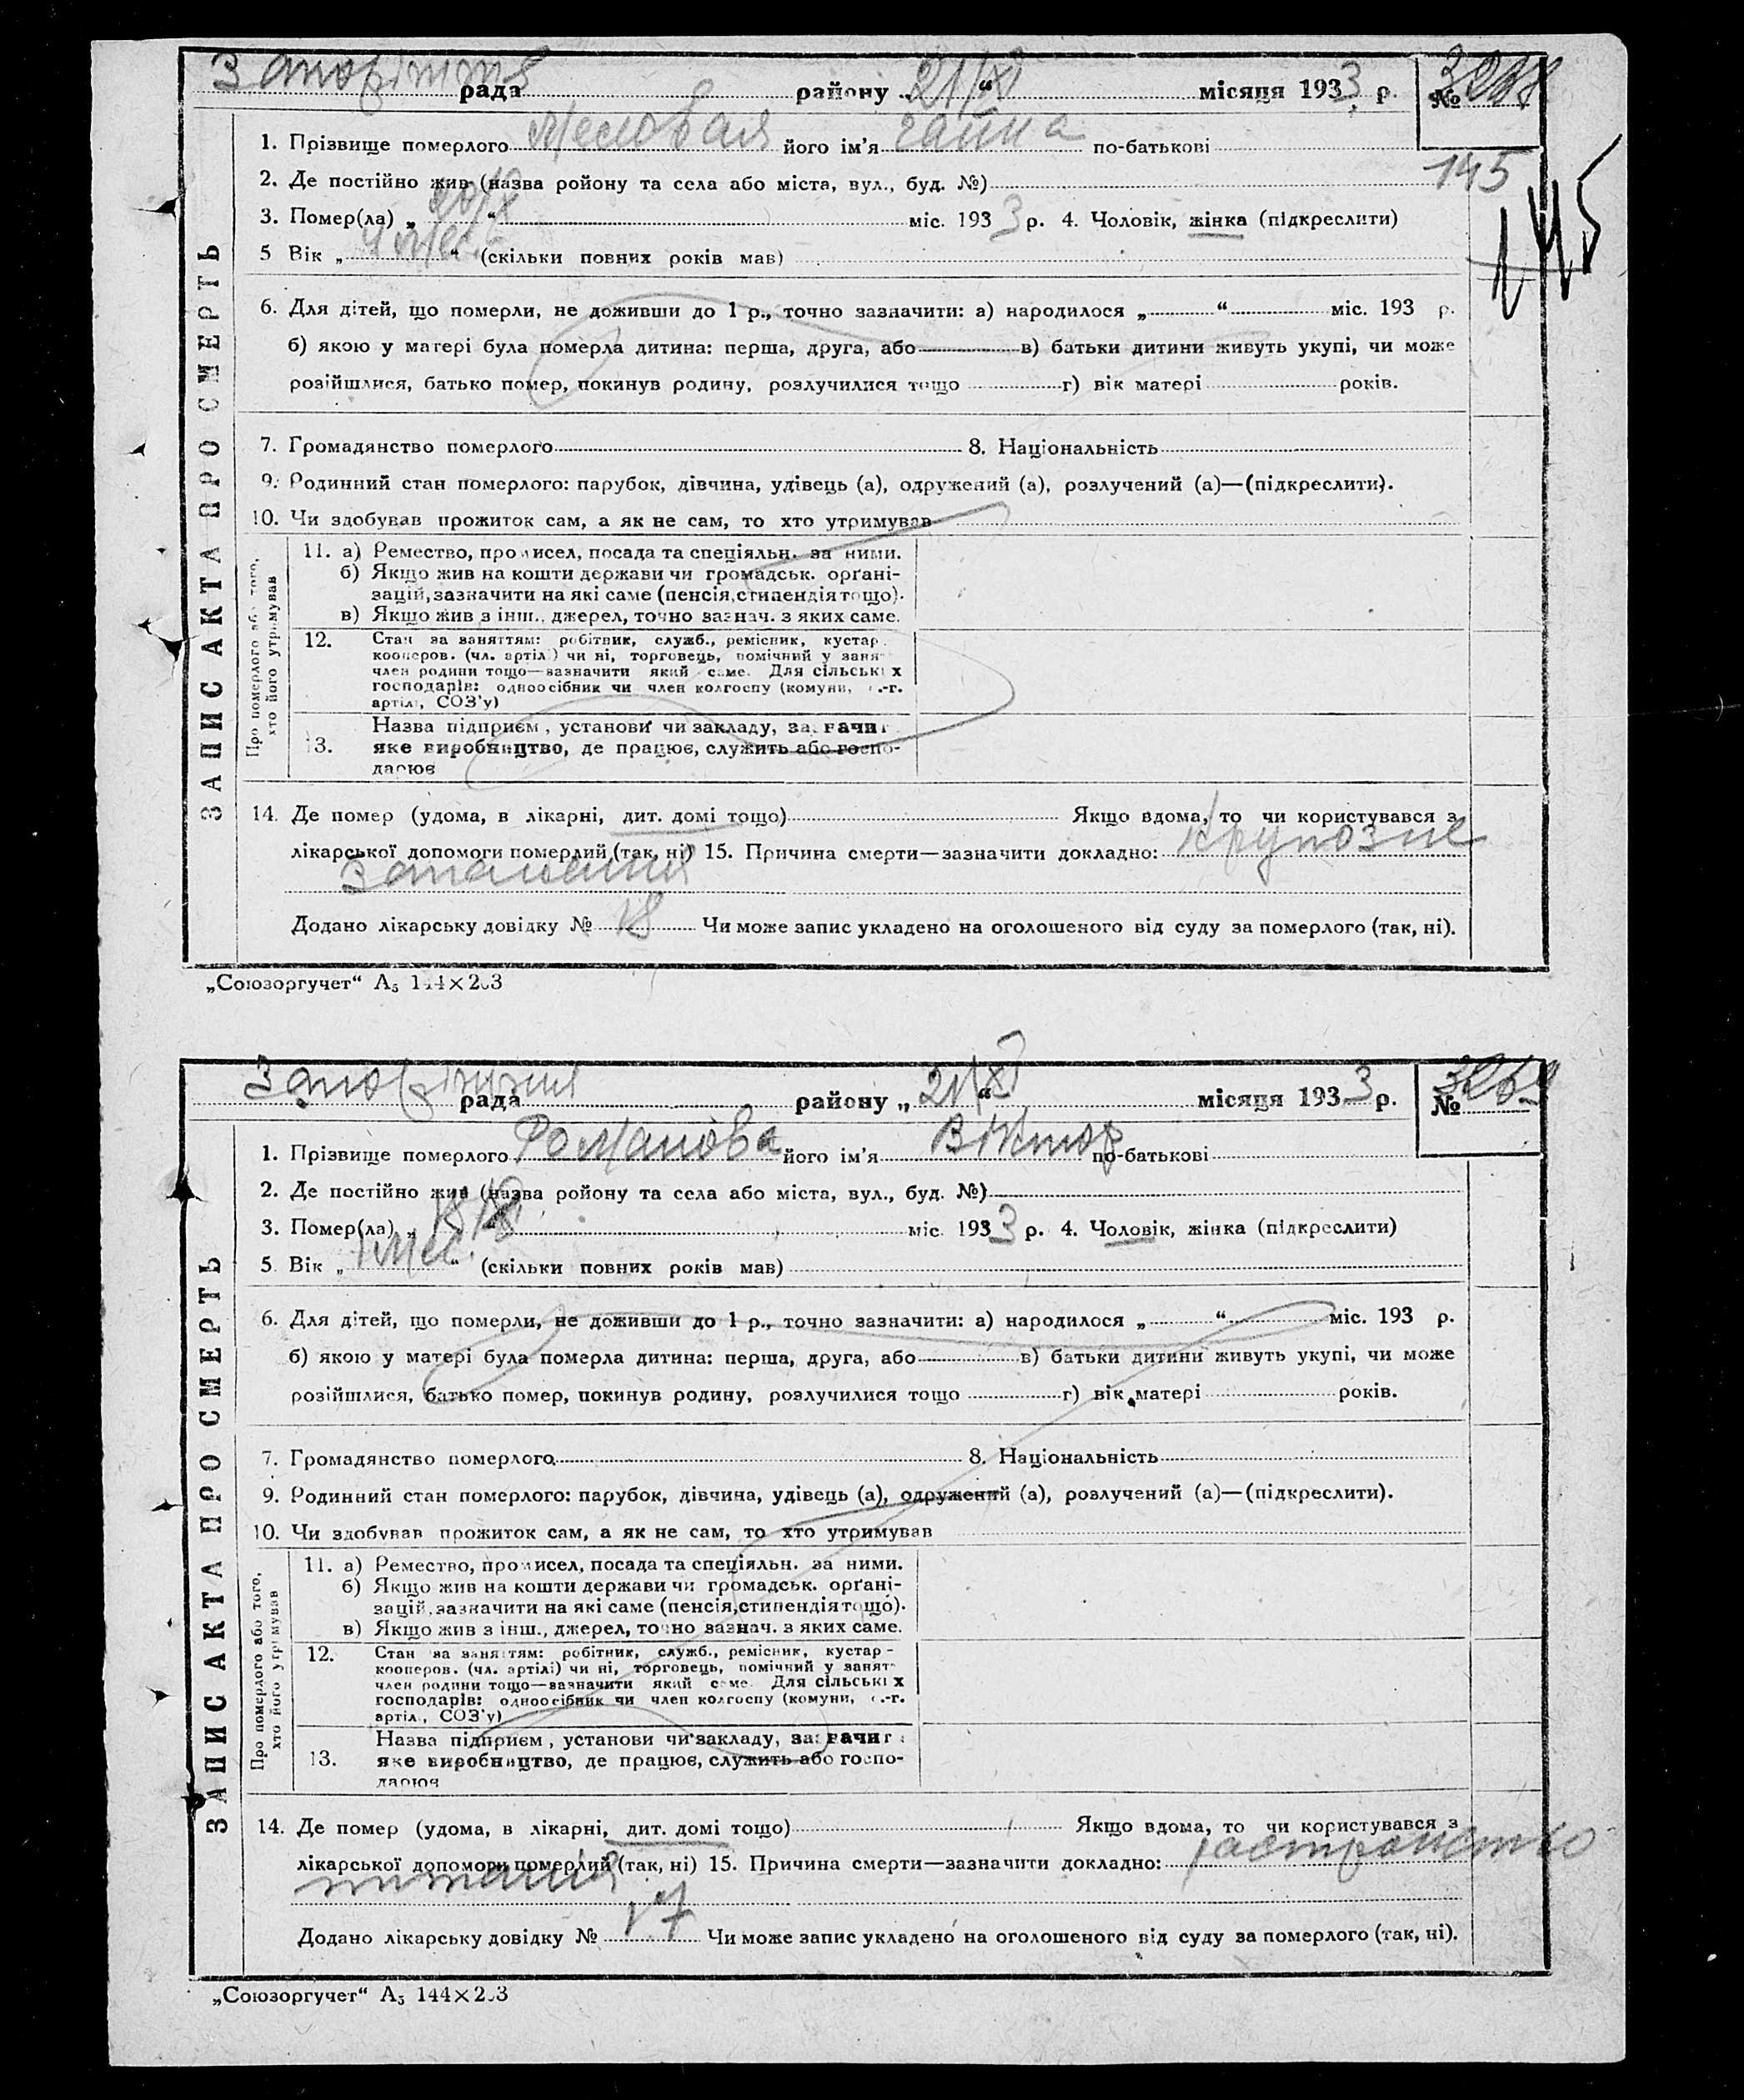 Запоріжжя рада району „ 21/XI “ місяця 1933 р. № 3268
1. Прізвище померлого його ім’я по-батькові
145
2. Де постійно жив (назва ройону та села або міста, вул., буд. №)
3. Помер(ла) „ “ міс. 1933 р. 4. Чоловік, жінка (підкреслити)
145
5 Вік „ 4 мес. “ (скільки повних років мав)
6. Для дітей, що померли, не доживши до 1 р., точно зазначити: а) народилося „ “ міс. 193 р.
б) якою у матері була померла дитина: перша, друга, або в) батьки дитини живуть укупі, чи може
розійшлися, батько помер, покинув родину, розлучилися тощо г) вік матері років.
7. Громадянство померлого 8. Національність
9. Родинний стан померлого: парубок, дівчина, удівець (а), одружений (а), розлучений (а)—(підкреслити).
10. Чи здобував прожиток сам, а як не сам, то хто утримував
Про померлого або того, хто його утримував
11. а) Ремество, промисел, посада та спеціяльн. за ними.
б) Якщо жив на кошти держави чи громадськ. орґані-
зацій, зазначити на які саме (пенсія, стипендія тощо).
в) Якщо жив з інш., джерел, точно зазнач. з яких саме.
12. Стан за заняттям: робітник, служб., ремісник, кустар
кооперов. (чл. артілі) чи ні, торговець, помічний у занят
член родини тощо—зазначити який саме. Для сільських
господарів: одноосібник чи член колгоспу (комуни, с.-г.
артілі, СОЗ’у)
13. Назва підприєм, установи чи закладу, зазначит
яке виробництво, де працює, служить або госпо-
дарює
14. Де помер (удома, в лікарні, дит. домі тощо) Якщо вдома, то чи користувався з
лікарської допомоги померлий, (так, ні) 15. Причина смерти—зазначити докладно: крупозне
запалення
Додано лікарську довідку № 18 Чи може запис укладено на оголошеного від суду за померлого (так, ні).
ЗАПИС АКТА ПРО СМЕРТЬ
„Союзоргучет“ А₅ 144×203
Запоріжжя рада району „ 21/XI “ місяця 1933 р. № 3269
1. Прізвище померлого Романова його ім’я Віктор по-батькові
2. Де постійно жив (назва ройону та села або міста, вул., буд. №)
3. Помер(ла) „ міс. 1933 р. 4. Чоловік, жінка (підкреслити)
5. Вік „ 1 мес. “ (скільки повних років мав)
6. Для дітей, що померли, не доживши до 1 р., точно зазначити: а) народилося „ “ міс. 193 р.
б) якою у матері була померла дитина: перша, друга, або в) батьки дитини живуть укупі, чи може
розійшлися, батько помер, покинув родину, розлучилися тощо г) вік матері років.
7. Громадянство померлого 8. Національність
9. Родинний стан померлого: парубок, дівчина, удівець (а), одружений (а), розлучений (а)—(підкреслити).
10. Чи здобував прожиток сам, а як не сам, то хто утримував
Про померлого або того, хто його утримував
11. а) Ремество, промисел, посада та спеціяльн. за ними.
б) Якщо жив на кошти держави чи громадськ. орґані-
зацій, зазначити на які саме (пенсія, стипендія тощо).
в) Якщо жив з інш., джерел, точно зазнач. з яких саме.
12. Стан за заняттям: робітник, служб., ремісник, кустар-
кооперов. (чл. артілі) чи ні, торговець, помічний у занят
член родини тощо—зазначити який саме. Для сільських
господарів: одноосібник чи член колгоспу (комуни, с.-г.
артіл., СОЗ’у)
13. Назва підприєм, установи чи закладу, зазначит
яке виробництво, де працює, служить або госпо-
дарює
14. Де помер (удома, в лікарні, дит. домі тощо) Якщо вдома, то чи користувався з
лікарської допомоги померлий (так, ні) 15. Причина смерти—зазначити докладно: растройство
питанія
Додано лікарську довідку № 17 Чи може запис укладено на оголошеного від суду за померлого (так, ні).
ЗАПИС АКТА ПРО СМЕРТЬ
„Союзоргучет“ А₅ 144×203